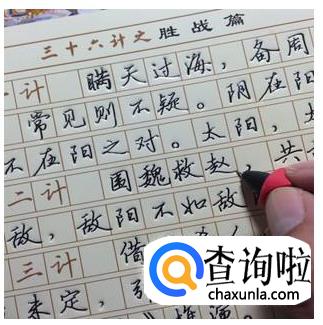 三十六计之胜战篇
一计 瞒天过海，备周
常见则不疑。阴在阳
不在阳之对。太阳，太
二计 围魏救赵，共
敌，敌阳不如敌
三计 借
未定，引
查询啦
chaxunla.com